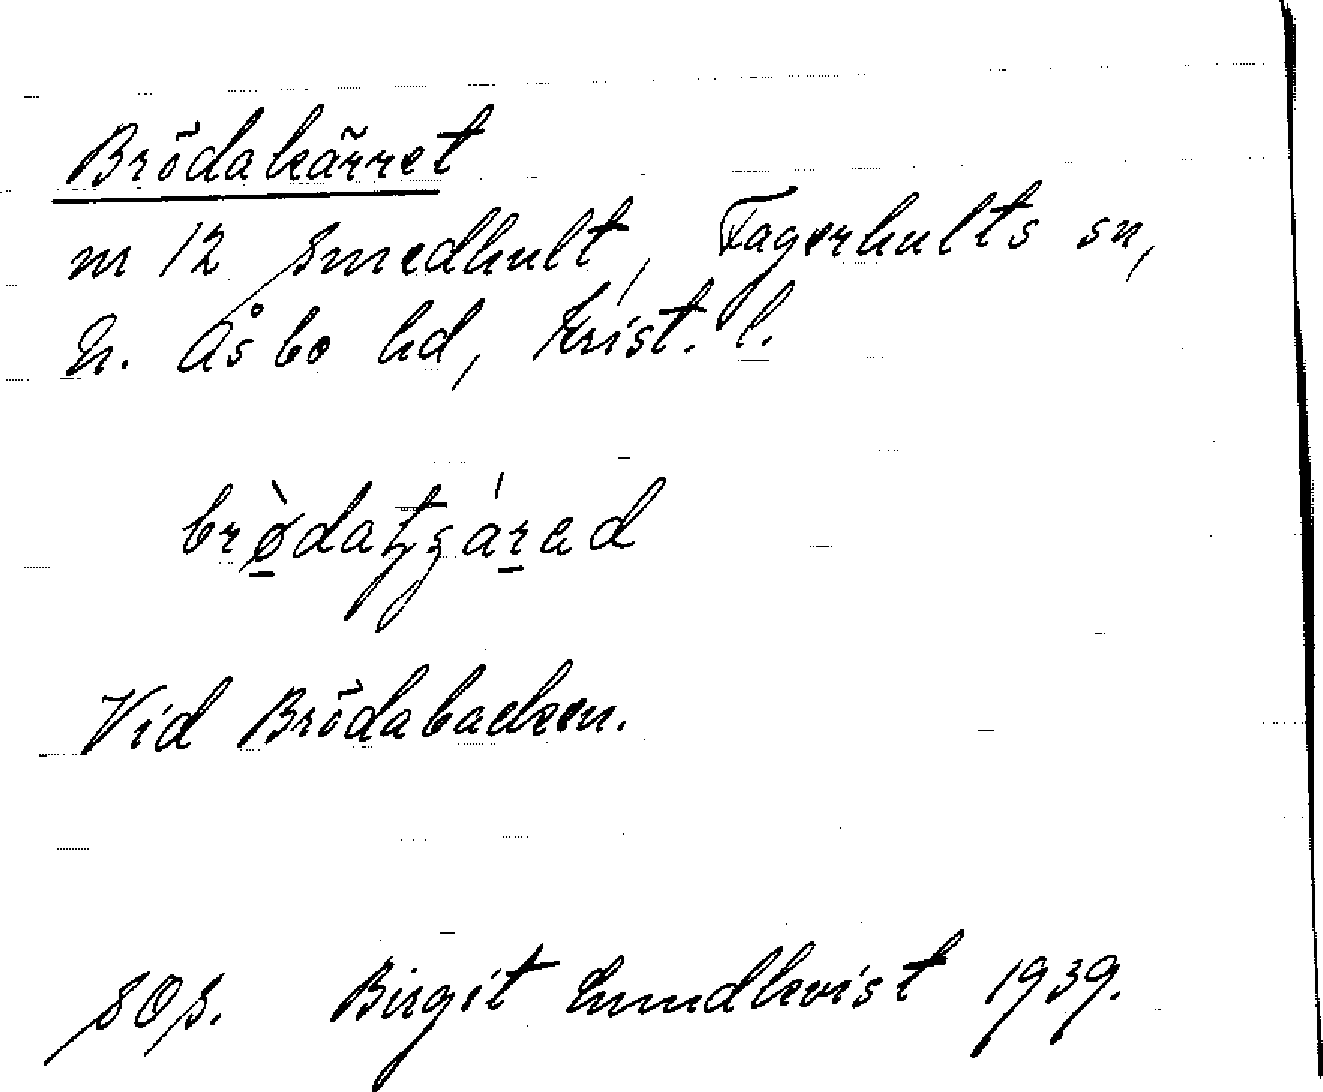 Brödakärret
nr 12 Smedhult, Fagerhults sn,
N. Åsbo hd, Krist. l.
Vid Brödabacken.
SOS. Birgit Lundkvist 1939.